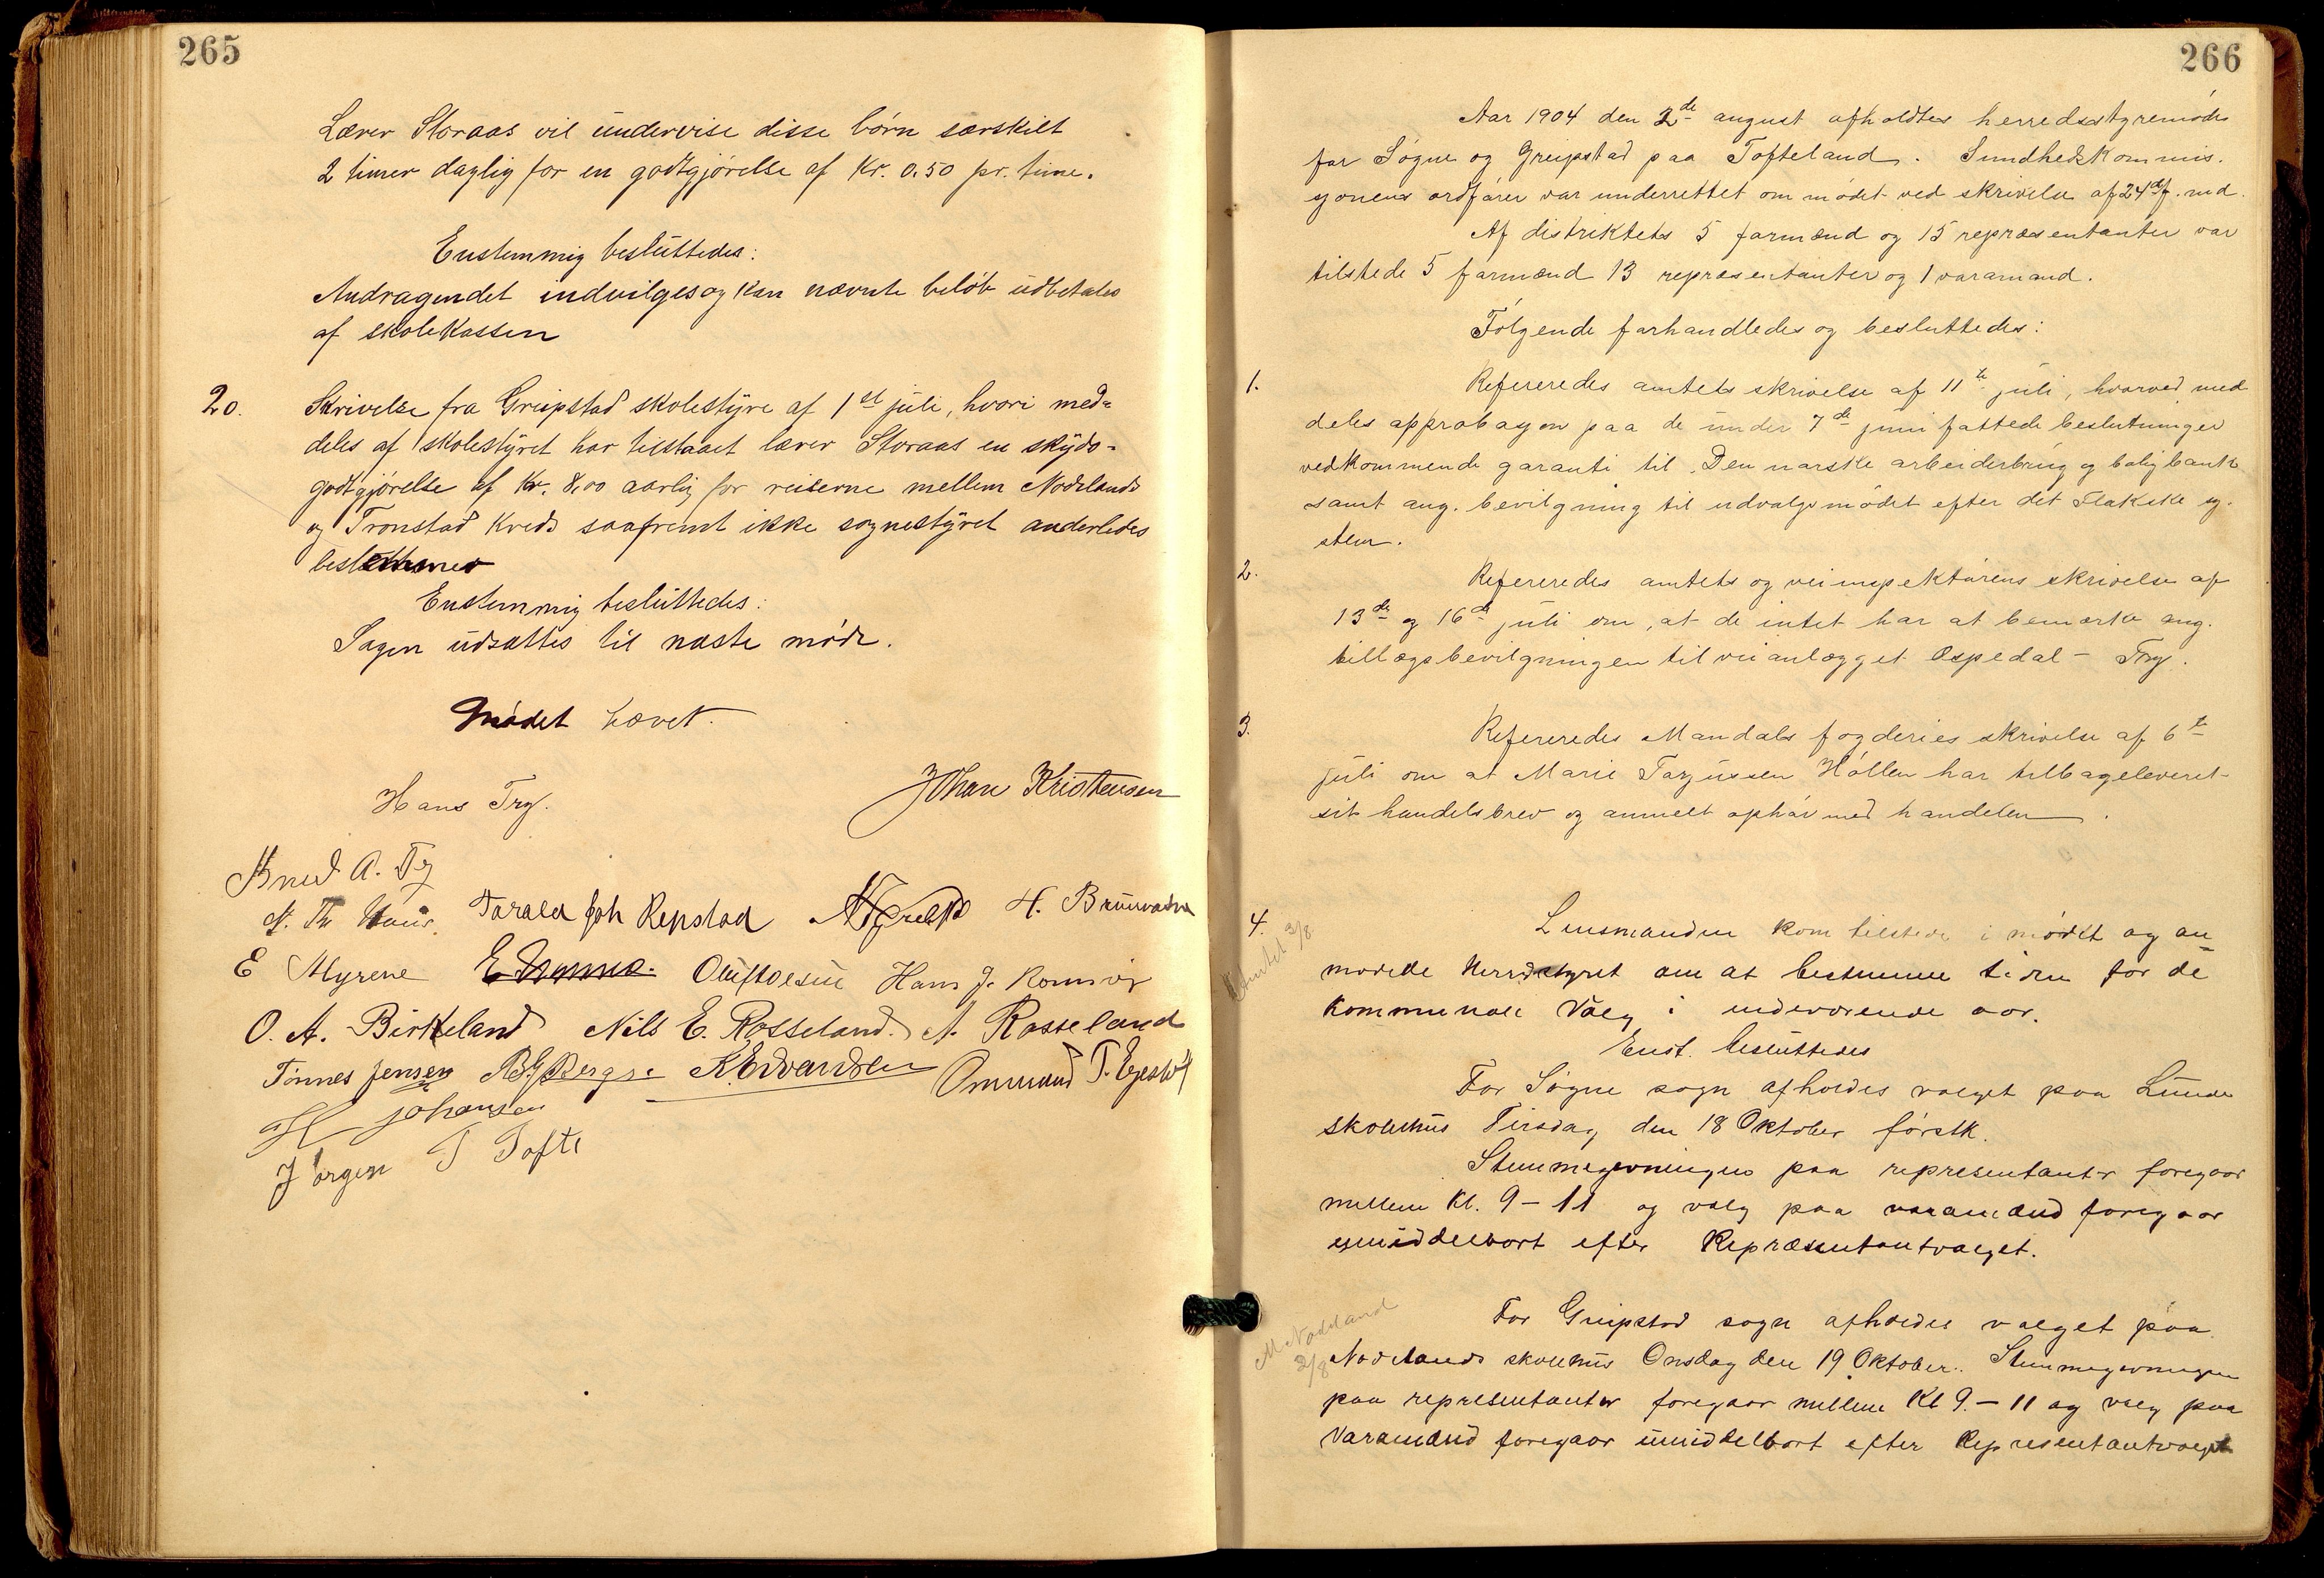 265
Lærer Storaas vil undervise disse børn særskilt
2 timer daglig for en godtgjørelse af Kr. 0.50 pr. time.
Enstemmig besluttedes:
Andragendet indvilges og kan nævnte beløb udbetales
af skolekassen
20.
Skrivelse fra Greipstad skolestyre af 1st juli, hvori med=
deles af skolestyret har tilstaaet lærer Storaas en skyds-
godtgjørelse af Kr. 8,00 aarlig for reiserne mellem Nodelands
og Tronstad Kreds saafremt ikke sognestyret anderledes
bestemmer
Enstemmig besluttedes:
Sagen udsættes til næste møde.
Mødet hævet.
Hans Try. Johan Kristensen
Knud A. Try
N. Th. Tarald Joh Repstad H. Brunvatne
E Myrene Hans J. Romsvig
O. A. Birkeland Nils E. Rosseland. A. Rosseland
Tønnes Jensen K. Edvardsen Ommund T. Egestøl
H Johansen
Jørgen T Tofte
266
Aar 1904 den 2de august afholdtes herredsstyremøde
for Søgne og Greipstad paa Tofteland. Sundhedskommis.
sjonens ordfører var underrettet om mødet ved skrivelse af 24de f. md.
Af distriktets 5 formænd og 15 repræsentanter var
tilstede 5 formænd 13 repræsentanter og 1 varamand.
Følgende forhandledes og besluttedes:
1.
Refereredes amtets skrivelse af 11te juli, hvorved med
deles approbasjon paa de under 7de juni fattede beslutninger
vedkommende garanti til Den norske arbeiderbrug og boligbank
samt ang. bevilgning til udvalgsmødet efter det Flakske sy.
stem.
2.
Refereredes amtets og veiinspektørens skrivelse af
13de og 16de juli om, at de intet har at bemærke ang.
tillægsbevilgningen til veianlægget Ospedal - Try.
3.
Refereredes Mandals fogderies skrivelse af 6te
juli om at Marie Tarjussen Høllen har tilbageleveret
sit handelsbrev og anmelt ophør med handelen.
4.
Amtet 3/8
Lensmanden kom tilstede i mødet og an
modede Herredstyret om at bestemme tiden for de
kommunale Valg i indeværende aar.
Enst. besluttedes
For Søgne sogn afholdes valget paa Lunde
skolehus Tirsdag den 18 Oktober førstk.
Stemmegivningen paa representanter foregaar
mellem Kl. 9 - 11 og valg paa varamænd foregaar
umiddelbart efter Repræsentantvalget.
M Nodeland
3/8
For Greipstad sogn afholdes valget paa
Nodelands skolehus Onsdag den 19 Oktober. Stemmegivningen
paa representanter foregaar mellem Kl 9. - 11 og valg paa
Varamænd foregaar umiddelbart efter Representantvalget